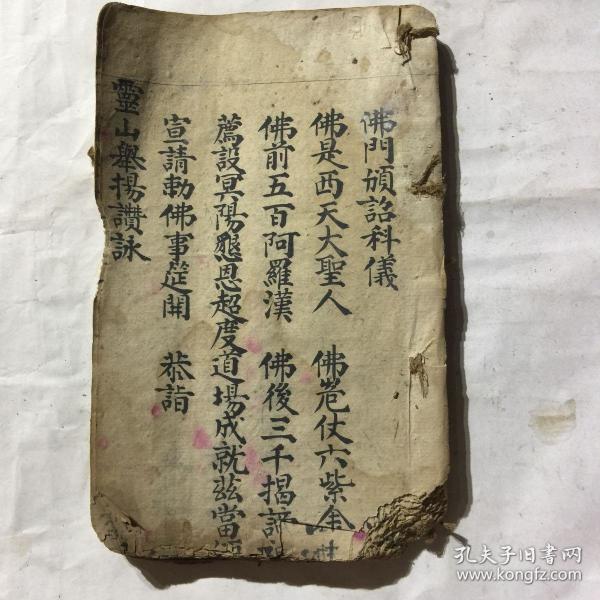 佛門頒詔科儀
佛是西天大聖人　佛　仗六紫金
佛前五百阿羅漢　佛後三千揭諦
薦設冥陽懇恩超度道場成就茲當
宣請勅佛事筵開　恭詣
靈山舉揚讚詠
孔夫子旧书网
www.kongfz.com